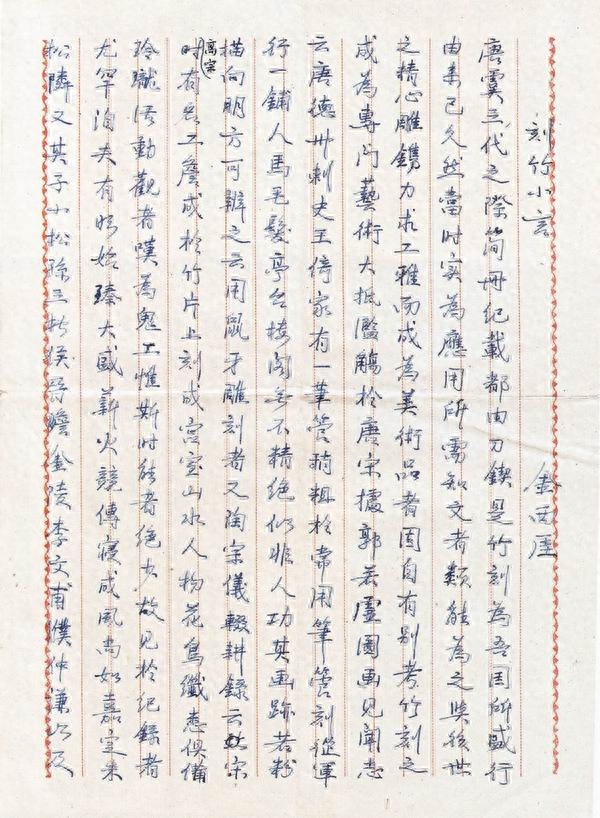 刻竹小言
金西厓
唐虞三代之际简册纪载都由刀锲是竹刻為吾国所盛行
由来已久然當时实為應用所需知文者類能為之與後世
之精心雕镌力求工雅而成為美術品者固自有别考竹刻之
成為專门藝術大抵濫觴於唐宋據郭若虚圖画见闻志
云唐德州刺史王倚家有一筆管稍粗於常用筆管刻從軍
行一铺人馬毛髮亭台楼阁无不精绝似非人功其画跡若粉
描向明方可辨之云用鼠牙雕刻者又陶宗儀輟耕錄云宋
高宗
时有巧工詹成於竹片上刻成宫室山水人物花鸟纖悉俱備
玲瓏活動觀者嘆為鬼工惟斯时能者绝少故见於纪錄者
尤罕洎夫有明始臻大盛薪火競傳寖成風尚如嘉定朱
松隣又其子小松孙三松侯崤曕金陵李文甫濮仲謙以及